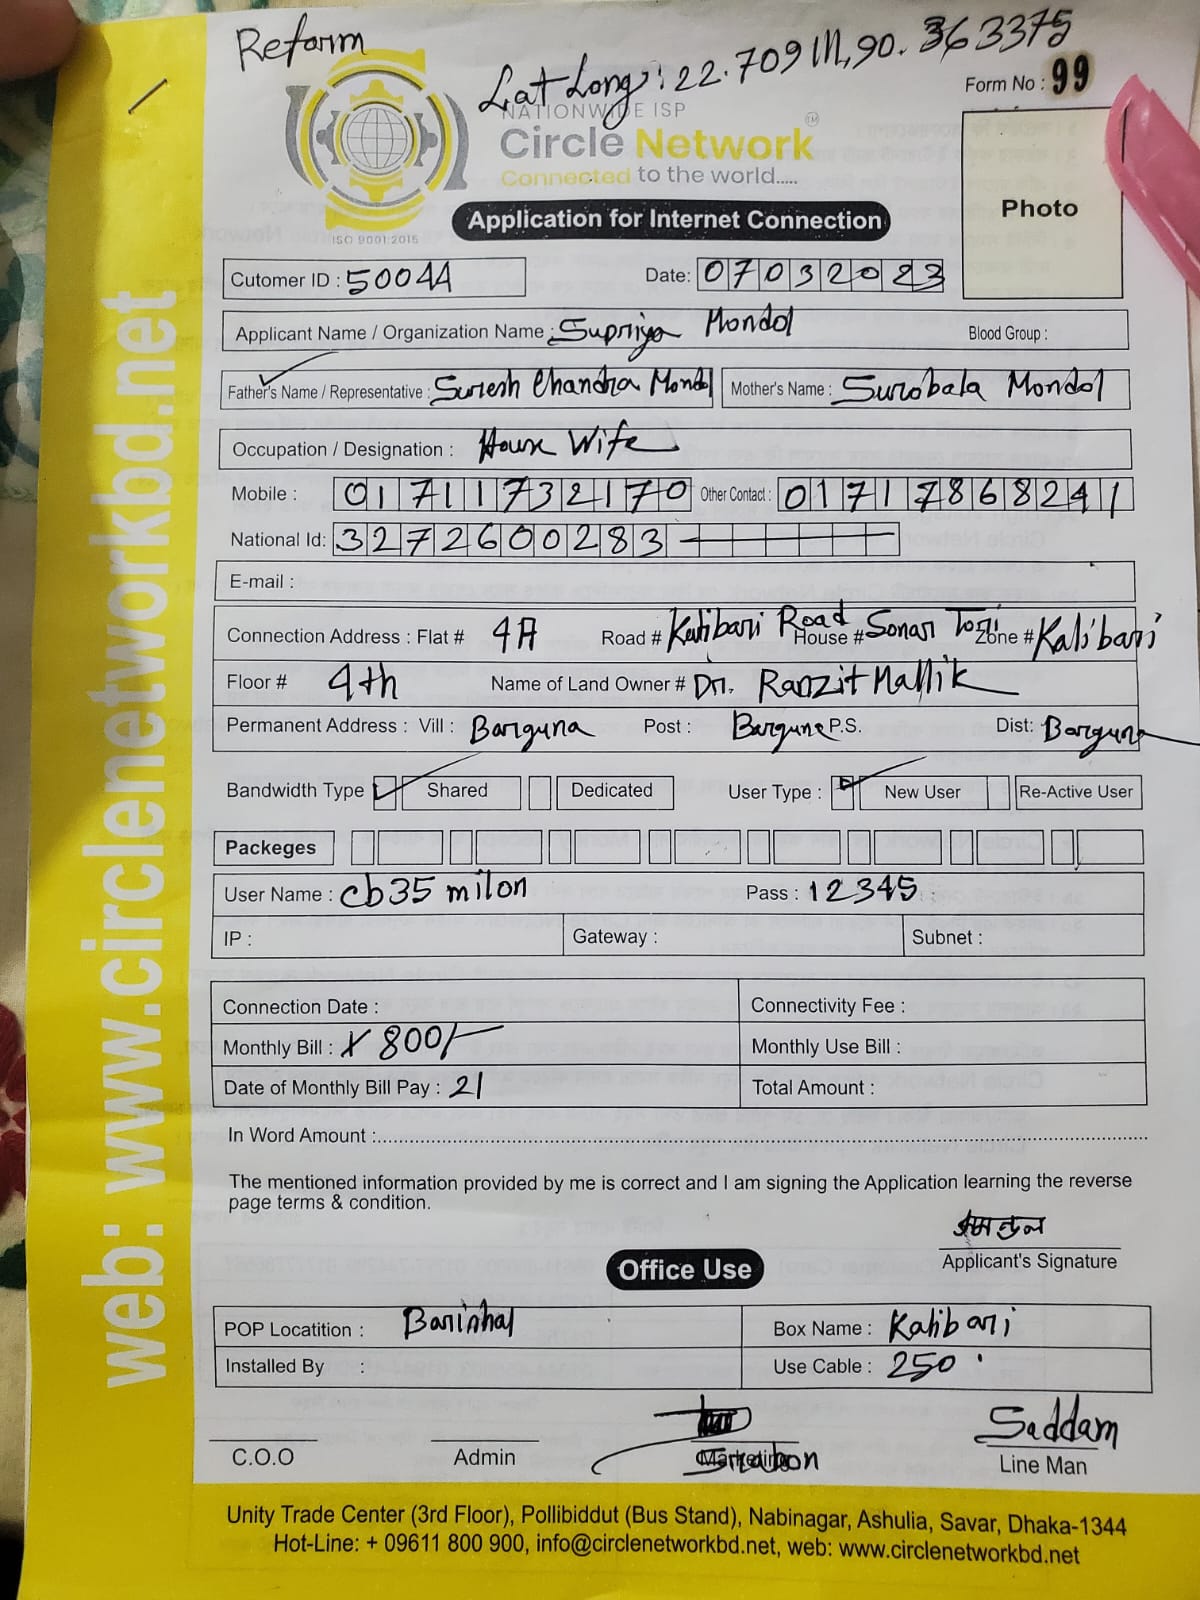 Reform
Lat Long: 22.709111, 90.363375
Form No : 99
NATIONWIDE ISP
Circle Network TM
Connected to the world.....
ISO 9001:2015
Application for Internet Connection
Photo
Cutomer ID : 50044
Date: 07032023
Applicant Name / Organization Name : Supriya Mondol Blood Group :
Father's Name / Representative : Suresh Chandra Mondol Mother's Name : Surobala Mondol
Occupation / Designation : House Wife
Mobile : 01711732170 Other Contact : 01717868241
National Id: 3272600283
E-mail :
Connection Address : Flat # 4A Road # Kalibari Road House # Sonar Tori Zone # Kalibari
Floor # 4th Name of Land Owner # Dr. Ranzit Mallik
Permanent Address : Vill : Barguna Post : Barguna P.S. Dist: Barguna
Bandwidth Type Shared Dedicated User Type : New User Re-Active User
Packeges
User Name : cb35 milon Pass : 12345
IP : Gateway : Subnet :
Connection Date : Connectivity Fee :
Monthly Bill : 800/- Monthly Use Bill :
Date of Monthly Bill Pay : 21 Total Amount :
In Word Amount :
The mentioned information provided by me is correct and I am signing the Application learning the reverse
page terms & condition.
Applicant's Signature
Office Use
POP Locatition : Barishal Box Name : Kalibari
Installed By : Use Cable : 250
C.O.O Admin Marketing Srabon Saddam Line Man
Unity Trade Center (3rd Floor), Pollibiddut (Bus Stand), Nabinagar, Ashulia, Savar, Dhaka-1344
Hot-Line: + 09611 800 900, info@circlenetworkbd.net, web: www.circlenetworkbd.net
web: www.circlenetworkbd.net